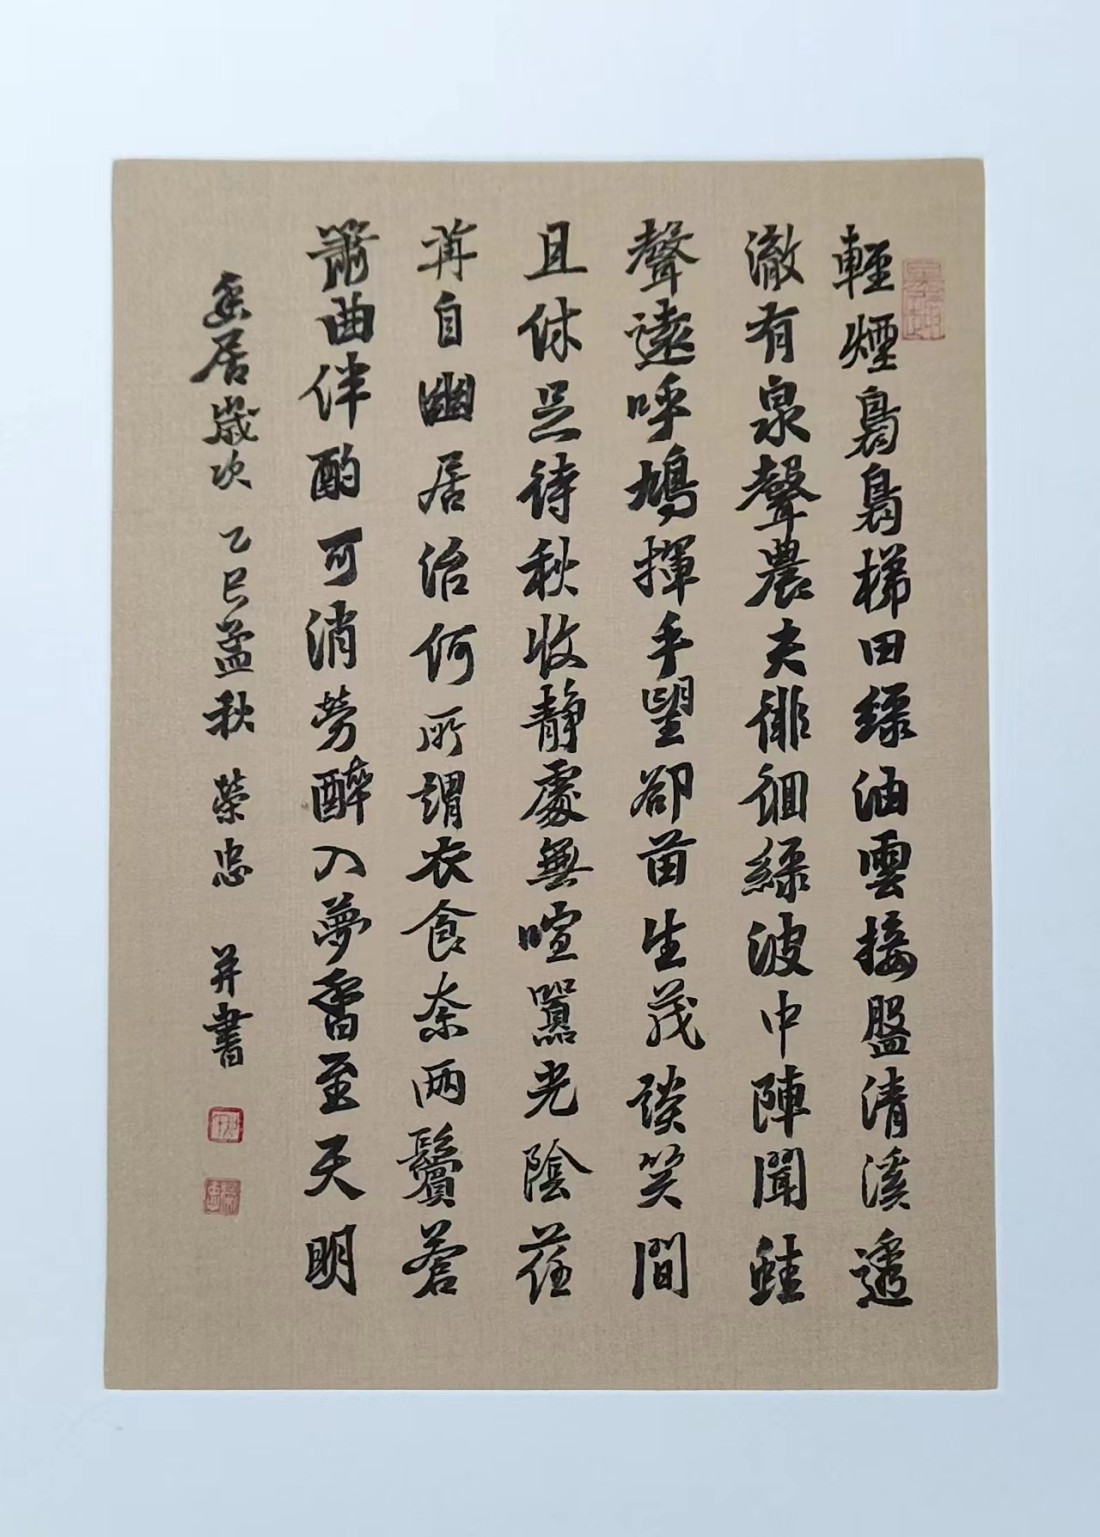 輕煙裊裊梯田綠油雲接盤清溪透
澈有泉聲農夫徘徊綠波中陣聞蛙
聲遠呼鳩揮手望卻苗生茂談笑間
且休足待秋收靜處無喧囂光陰荏
苒自幽居治何所謂衣食奈兩鬢蒼
簫曲伴酌可消勞醉入夢香至天明
居歲次乙巳孟秋榮忠并書